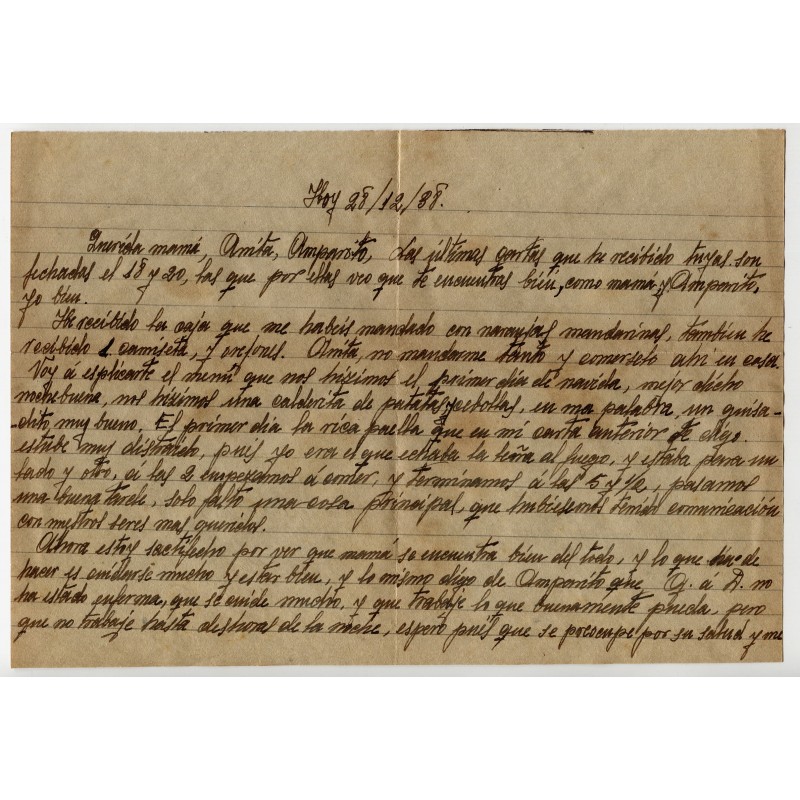 Hoy 28/12/38.
Querida mamá, Anita, Amparito, Las últimas cartas que he recibido tuyas son
fechadas el 18 y 20, las que por ellas veo que te encuentras bien, como mamá y Amparito,
yo bien.
He recibido la caja que me habeis mandado con naranjas mandarinas, tambien he
recibido 1 camiseta, y orejones. Anita, no mandarme tanto y comerselo ahi en casa.
Voy á esplicarte el menú que nos hizimos el primer dia de navida, mejor dicho
nochebuena, nos hizimos una calderita de patatas y cebollas, en una palabra, un guisa-
-dito, muy bueno. El primer dia la rica paella que en mi carta anterior te digo.
estube muy distraido, puis yo era el que echaba la leña al fuego, y estaba para un
lado y otro, á las 2 empezamos á comer, y terminamos á las 5 y 1/2, pasamos
una buena tarde, solo falto una cosa principal, que hubiesemos tenido comunicación
con nuestros seres mas queridos.
Ahora estoy sactifecho por ver que mamá se encuentra bien del todo, y lo que tiene de
hacer es cuidarse mucho y estar bien, y lo mismo digo de Amparito que G. á D. no
ha estado enferma, que se cuide mucho, y que trabaje lo que buenamente pueda, pero
que no trabaje hasta deshoras de la noche, espero puis que se preocupe por su salud y me